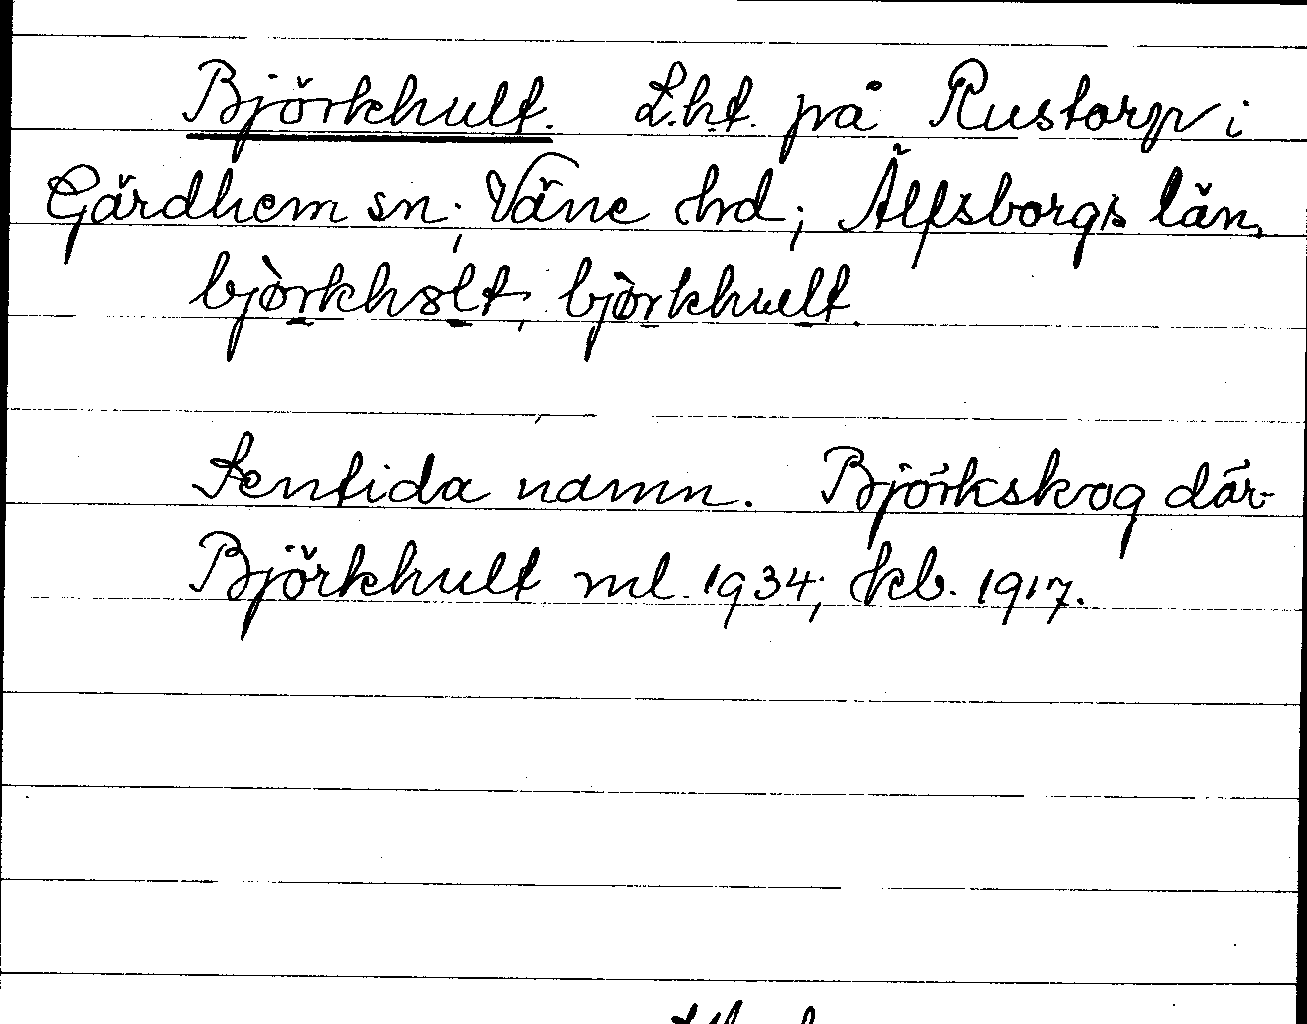 Björkhult. L.ht. på Rustorp i
Gärdhem sn; Väne hd; Älfsborgs län,
bjòrkhslt, bjòrkhult.
Sentida namn. Björkskog där-
Björkhult ml. 1934; kb. 1917.